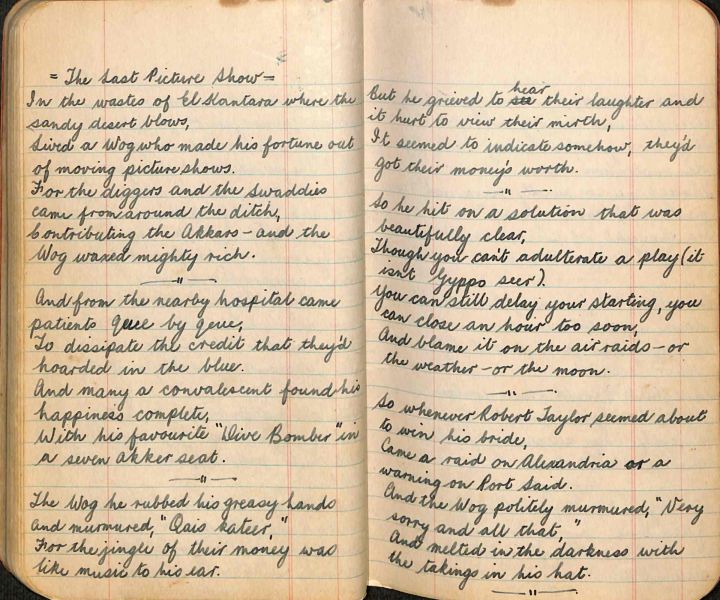 = The Last Picture Show =
In the wastes of El Kantara where the
sandy desert blows,
Lived a Wog who made his fortune out
of moving picture shows.
For the diggers and the Swaddies
came from around the ditch,
Contributing the Akkars - and the
Wog waxed mighty rich.
—"—
And from the nearby hospital came
patients queue by queue,
To dissipate the credit that they'd
hoarded in the blue.
And many a convalescent found his
happiness complete,
With his favourite "Dive Bomber" in
a seven akker seat.
—"—
The Wog he rubbed his greasy hands
and murmured, "Qais kateer,"
For the jingle of their money was
like music to his ear.
But he grieved to hear their laughter and
it hurt to view their mirth,
It seemed to indicate somehow, they'd
got their money's worth.
—"—
So he hit on a solution that was
beautifully clear,
Though you can't adulterate a play (it
isn't Gyppo seer).
You can still delay your starting, you
can close an hour too soon,
And blame it on the air raids - or
the weather - or the moon.
—"—
So whenever Robert Taylor seemed about
to win his bride,
Came a raid on Alexandria or a
warning on Port Said.
And the Wog politely murmured, "Very
sorry and all that,"
And melted in the darkness with
the takings in his hat.
—"—